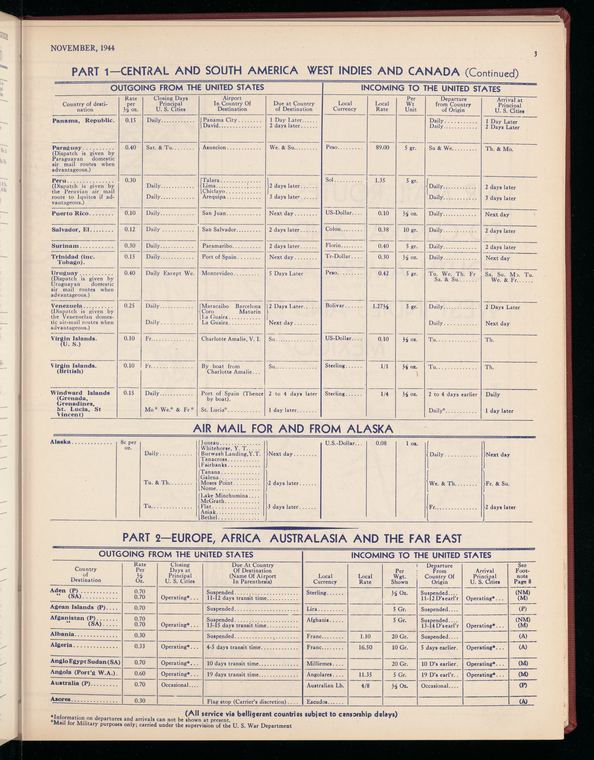 NOVEMBER, 1944
3
PART 1—CENTRAL AND SOUTH AMERICA WEST INDIES AND CANADA (Continued)
OUTGOING FROM THE UNITED STATES INCOMING TO THE UNITED STATES
Country of destination Rate per ½ oz. Closing Days Principal U. S. Cities Airport In Country Of Destination Due at Country of Destination Local Currency Local Rate Per Wt Unit Departure from Country of Origin Arrival at Principal U. S. Cities
Panama, Republic. 0.15 Daily Panama City 1 Day Later Daily 1 Day Later
David 2 days later Daily 2 Days Later
Paraguay 0.40 Sat. & Tu. Asuncion We. & Su. Peso 89.00 5 gr. Su & We. Th. & Mo.
(Dispatch is given by
Paraguayan domestic
air mail routes when
advantageous.)
Peru 0.30 Talara Sol 1.35 5 gr.
(Dispatch is given by Daily Lima 2 days later Daily 2 days later
the Peruvian air mail Chiclayo
route to Iquitos if ad- Daily Arequipa 3 days later Daily 3 days later
vantageous.)
Puerto Rico 0.10 Daily San Juan Next day US-Dollar 0.10 ½ oz. Daily Next day
Salvador, El 0.12 Daily San Salvador 2 days later Colon 0.38 10 gr. Daily 2 days later
Surinam 0.30 Daily Paramaribo 2 days later Florin 0.40 5 gr. Daily 2 days later
Trinidad (inc. 0.15 Daily Port of Spain Next day Tr-Dollar 0.30 ½ oz. Daily Next day
Tobago).
Uruguay 0.40 Daily Except We. Montevideo 5 Days Later Peso 0.42 5 gr. Tu. We. Th. Fr Sa. Su. M. Tu.
(Dispatch is given by Sa. & Su. We & Fr.
Uruguayan domestic
air mail routes when
advantageous.)
Venezuela 0.25 Daily Maracaibo Barcelona 2 Days Later Bolivar 1.27½ 5 gr. Daily 2 Days Later
(Dispatch is given by Coro Maturin
the Venezuelan domes- La Guaira
tic air-mail routes when Daily La Guaira Next day Daily Next day
advantageous.)
Virgin Islands. 0.10 Fr. Charlotte Amalie, V. I. Su US-Dollar 0.10 ½ oz. Tu. Th.
(U. S.)
Virgin Islands. 0.10 Fr. By boat from Su. Sterling 1/1 ½ oz. Tu. Th.
(British) Charlotte Amalie
Windward Islands 0.15 Daily Port of Spain (Thence 2 to 4 days later Sterling 1/4 ½ oz. 2 to 4 days earlier Daily
(Grenada, by boat).
Grenadines,
St. Lucia, St Mo* We.* & Fr* St. Lucia* 1 day later Daily* 1 day later
Vincent)
AIR MAIL FOR AND FROM ALASKA
Alaska 8c per oz. Juneau U.S.-Dollar 0.08 1 oz.
Whitehorse, Y. T.
Daily Burwash Landing, Y.T. Next day Daily Next day
Tanacross
Fairbanks
Tanana
Galena
Tu. & Th. Moses Point 2 days later We. & Th. Fr. & Su.
Nome
Lake Minchumina
McGrath
Tu. Flat 3 days later Fr. 2 days later
Aniak
Bethel
PART 2—EUROPE, AFRICA AUSTRALASIA AND THE FAR EAST
OUTGOING FROM THE UNITED STATES INCOMING TO THE UNITED STATES
Country of Destination Rate Per ½ Oz. Closing Days at Principal U.S. Cities Due At Country Of Destination (Name Of Airport In Parenthesis) Local Currency Local Rate Per Wgt. Shown Departure From Country Of Origin Arrival Principal U.S. Cities See Foot-note Page 8
Aden (P) 0.70 Suspended Sterling ½ Oz. Suspended (NM)
" (SA) 0.70 Operating* 11-12 days transit time 11-12 D's earl'r Operating* (M)
Agean Islands (P) 0.70 Suspended Lira 5 Gr. Suspended (P)
Afganistan (P) 0.70 Suspended Afghania 5 Gr. Suspended (NM)
(SA) 0.70 Operating* 13-15 days transit time 13-14 D's earl'r Operating* (M)
Albania 0.30 Suspended Franc 1.10 20 Gr. Suspended (A)
Algeria 0.33 Operating* 4-5 days transit time Franc 16.50 10 Gr. 5 days earlier Operating* (A)
Anglo Egypt Sudan (SA) 0.70 Operating* 10 days transit time Milliemes 20 Gr. 10 D's earlier Operating* (M)
Angola (Port'g W.A.) 0.60 Operating* 19 days transit time Angolares 11.35 5 Gr. 19 D's earl'r Operating* (M)
Australia (P) 0.70 Occasional Australian Lb. 4/8 ½ Oz. Occasional (P)
Azores 0.30 Flag stop (Carrier's discretion) Escudos (A)
(All service via belligerent countries subject to censorship delays)
*Information on departures and arrivals can not be shown at present.
*Mail for Military purposes only; carried under the supervision of the U. S. War Department